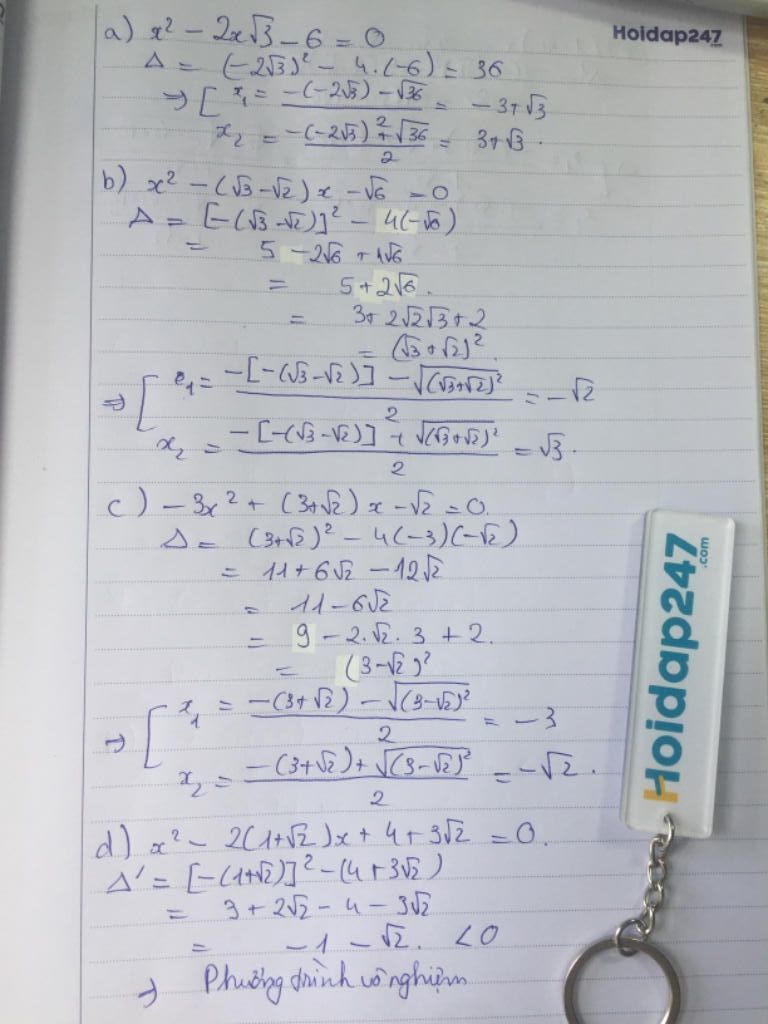 Hoidap247
.com
a) x² - 2x√3 - 6 = 0
Δ = (-2√3)² - 4.(-6) = 36
⇒ [ x₁ = (-(-2√3) - √36)/2 = -3+√3
x₂ = (-(-2√3) + √36)/2 = 3+√3.
b) x² - (√3-√2)x - √6 = 0
Δ = [-(√3-√2)]² - 4(-√6)
= 5 - 2√6 + 4√6
= 5 + 2√6.
= 3 + 2√2√3 + 2
= (√3+√2)².
⇒ [ x₁ = (-[-(√3-√2)] - √(√3+√2)²)/2 = -√2
x₂ = (-[-(√3-√2)] + √(√3+√2)²)/2 = √3.
c) -3x² + (3+√2)x - √2 = 0.
Δ = (3+√2)² - 4(-3)(-√2)
= 11 + 6√2 - 12√2
= 11 - 6√2
= 9 - 2.√2.3 + 2.
= (3-√2)²
⇒ [ x₁ = (-(3+√2) - √(3-√2)²)/2 = -3
x₂ = (-(3+√2) + √(3-√2)²)/2 = -√2.
d) x² - 2(1+√2)x + 4 + 3√2 = 0.
Δ' = [-(1+√2)]² - (4+3√2)
= 3 + 2√2 - 4 - 3√2
= -1 - √2. <0
⇒ Phương trình vô nghiệm
Hoidap247
.com